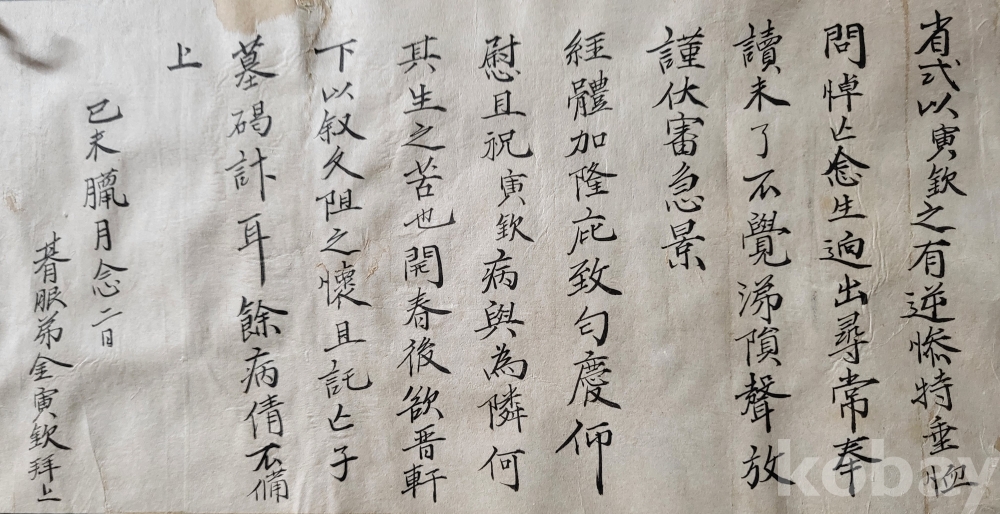 省式以寅欽之有逆慘特垂恤
問悼亡念生逈出尋常奉
讀未了不覺涕隕聲放
謹伏審急景
經體加隆庇致勻慶仰
慰且祝寅欽病與為隣何
其生之苦也開春後欲晋軒
下以叙久阻之懷且託亡子
墓碣計耳餘病倩不備
上
己未臘月念二日
朞服弟金寅欽拜上
kobay